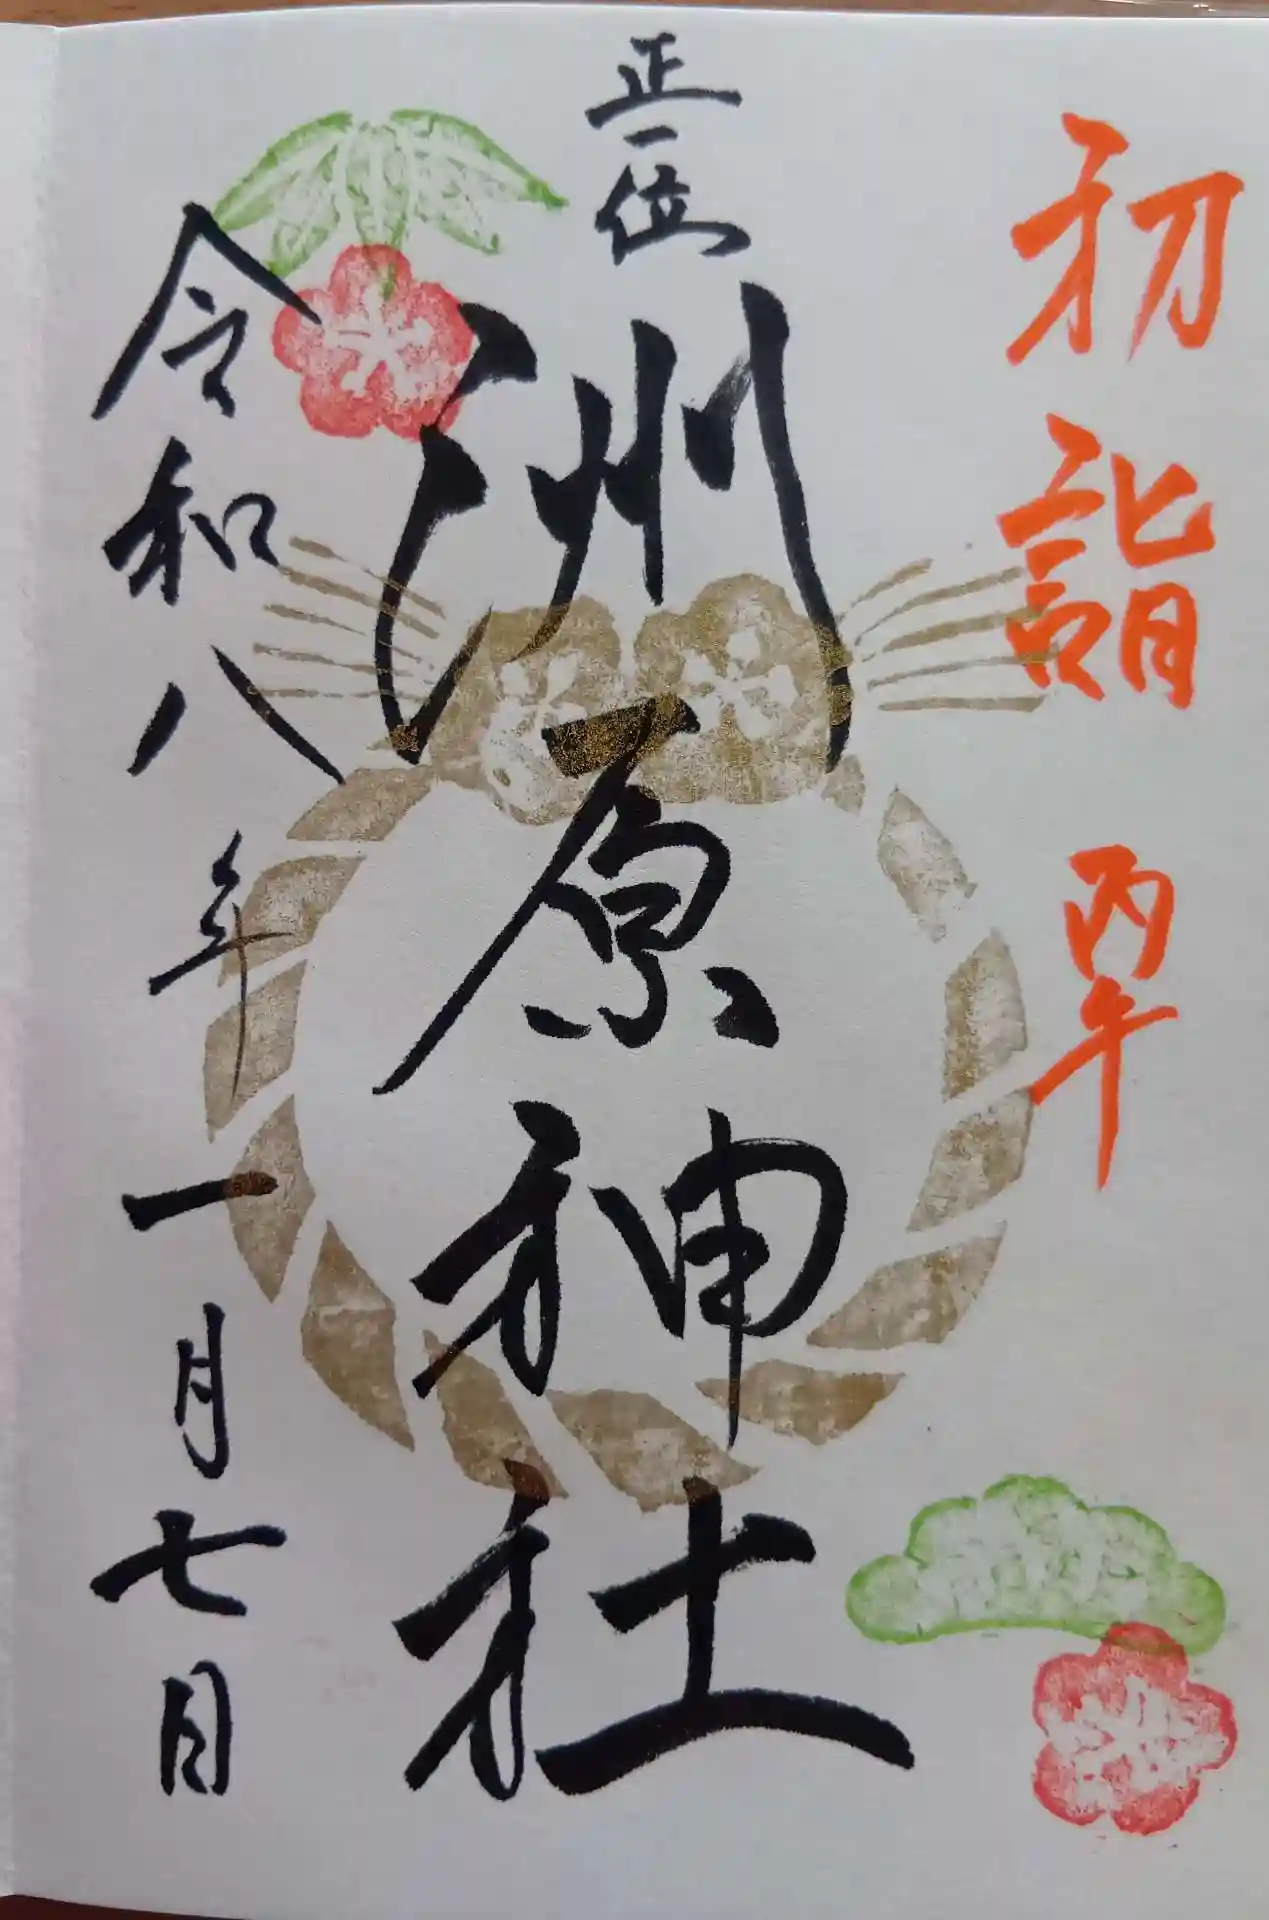 初詣 丙午
正一位
洲原神社
令和八年一月七日